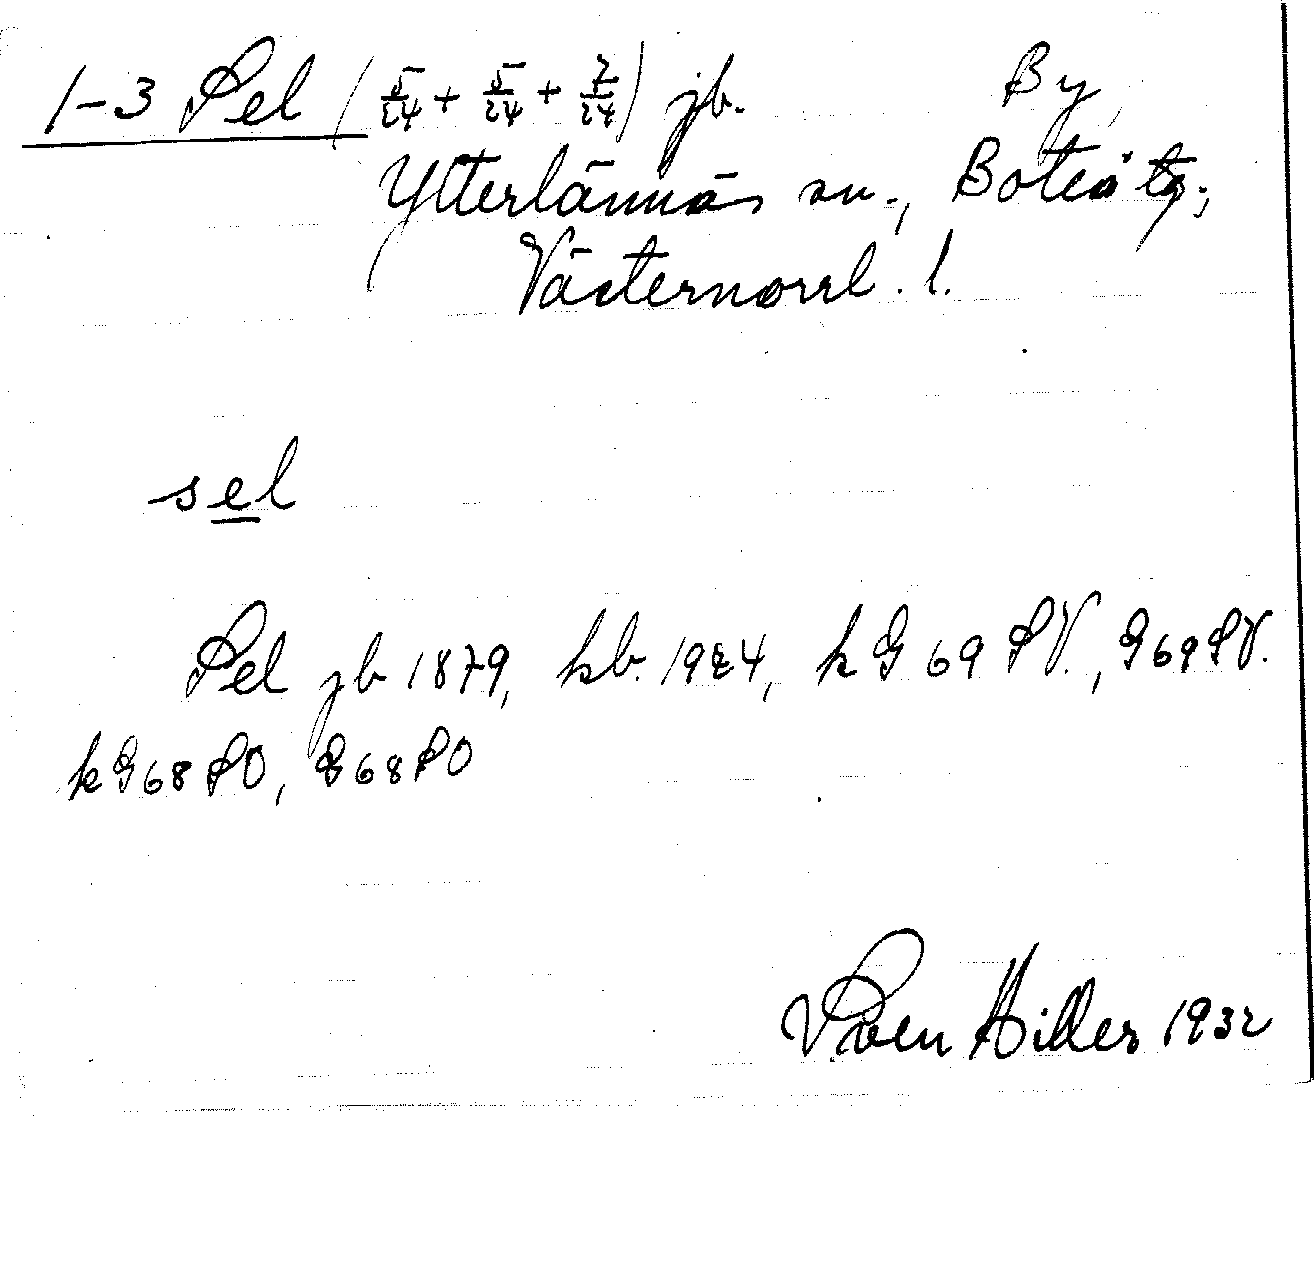 1-3 Sel (5/24 + 5/24 + 7/24) jb. By,
Ytterlännäs sn., Boteå tg.,
Västernorrl. l.
sel
Sel jb 1879, kb. 1924, k G 69 SV., G 69 SV.
k G 68 SO, G 68 SO
Sven Hiller 1932